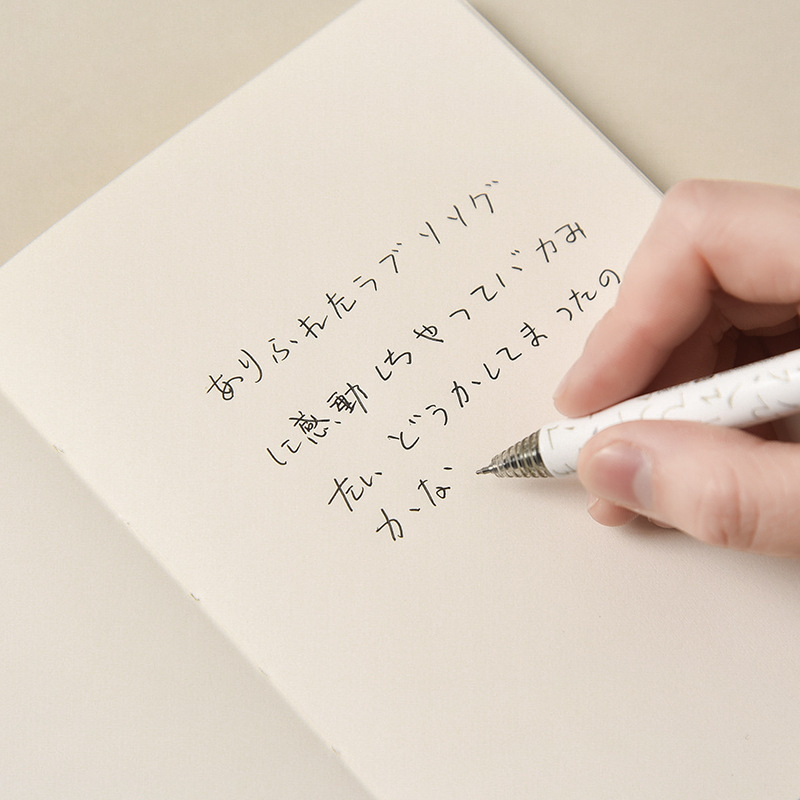 ありふれたラブソング
に感動しちゃってバカみ
たい どうかしてまったの
かな